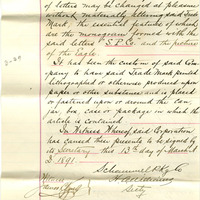 of letters may be changed at pleasure
without materially altering said Trade
Mark, the essential features of which
are the monogram formed with the
said letters "S. P. Co." and the picture
of the Eagle.
It has been the custom of said Com-
pany to have said Trade Mark printed
lithographed or otherwise produced upon
paper or other substances and is placed
or fastened upon or around the can
jar, box case or package in which the
article is contained
In Witness Whereof said Corporation
has caused these presents to be signed by
its Secretary this 13th day of March
D. 1891.
Secty